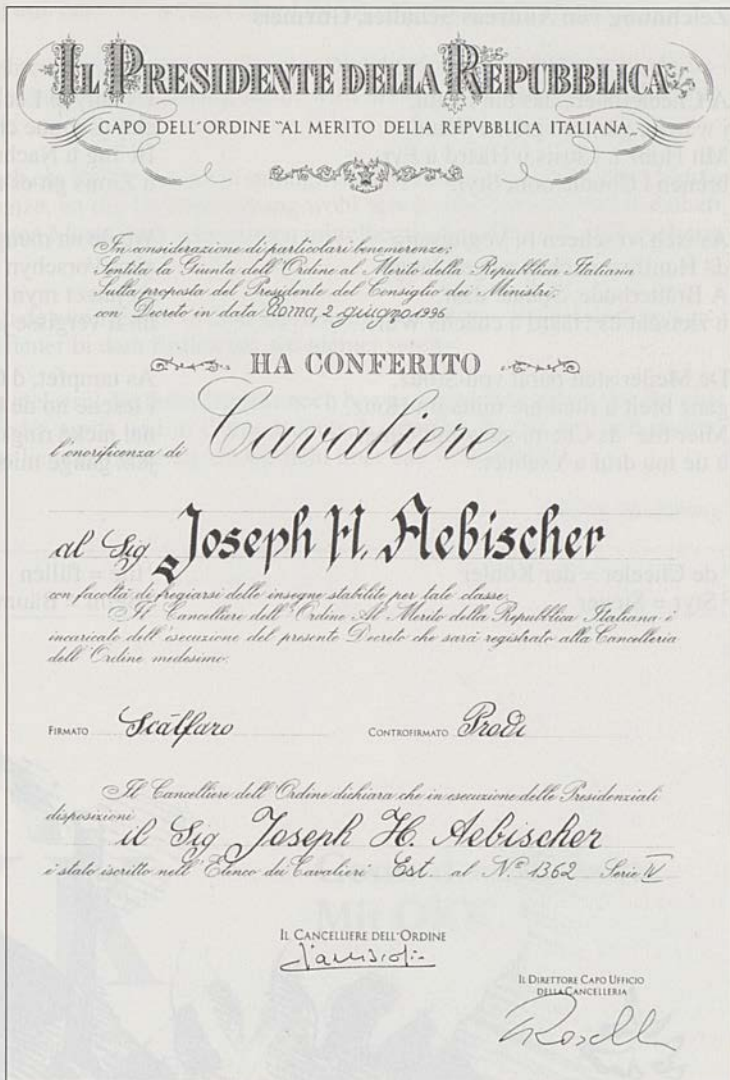 IL PRESIDENTE DELLA REPUBBLICA
CAPO DELL'ORDINE "AL MERITO DELLA REPVBBLICA ITALIANA"
In considerazione di particolari benemerenze;
Sentita la Giunta dell'Ordine al Merito della Repubblica Italiana
Sulla proposta del Presidente del Consiglio dei Ministri;
con Decreto in data Roma, 2 giugno 1996
HA CONFERITO
l'onorificenza di Cavaliere
al Sig Joseph H. Aebischer
con facoltà di fregiarsi delle insegne stabilite per tale classe.
Il Cancelliere dell'Ordine Al Merito della Repubblica Italiana è
incaricato dell'esecuzione del presente Decreto che sarà registrato alla Cancelleria
dell'Ordine medesimo.
FIRMATO Scalfaro CONTROFIRMATO Prodi
Il Cancelliere dell'Ordine dichiara che in esecuzione delle Presidenziali
disposizioni
il Sig Joseph H. Aebischer
è stato iscritto nell'Elenco dei Cavalieri Est. al N.º 1362 Serie IV
IL CANCELLIERE DELL'ORDINE
IL DIRETTORE CAPO UFFICIO
DELLA CANCELLERIA